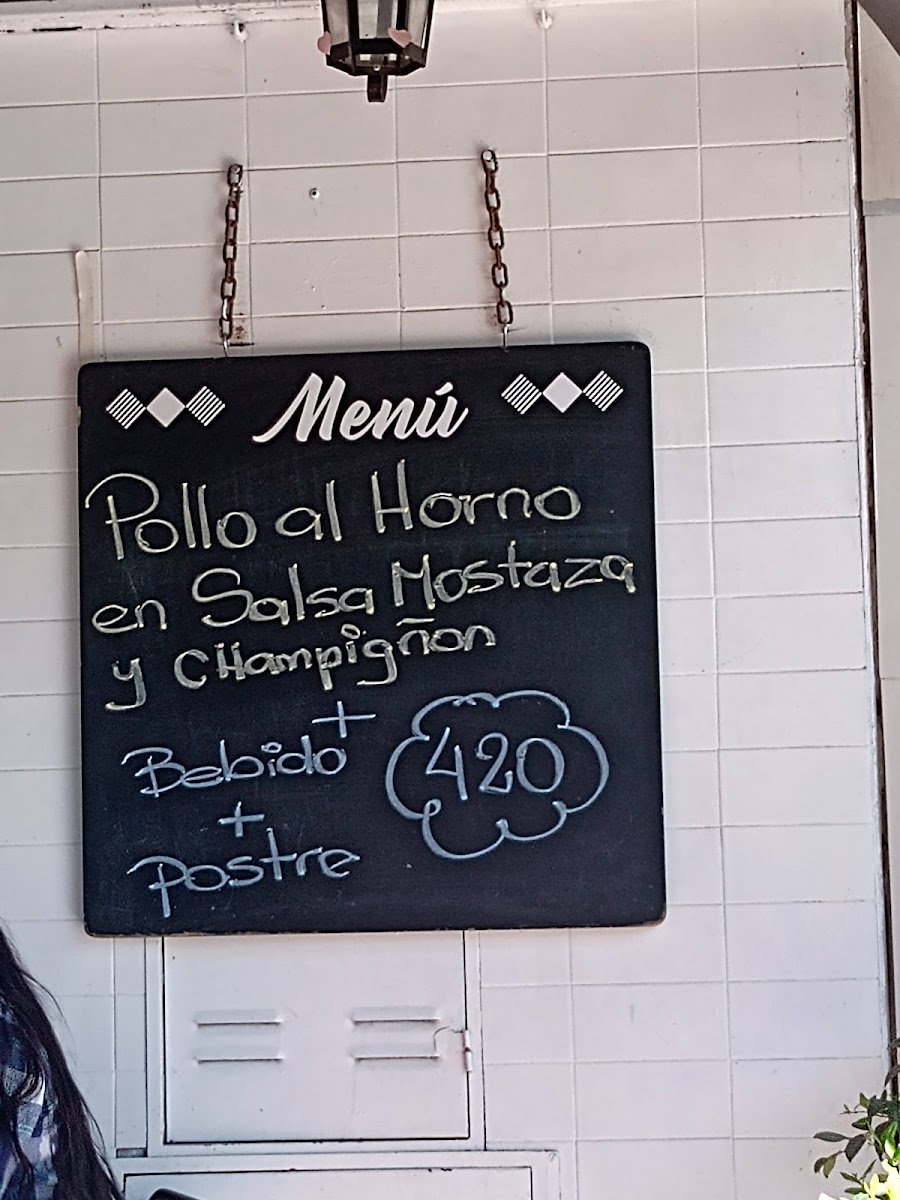 Menú
Pollo al Horno
en Salsa Mostaza
y CHampigñon
+
Bebida
420
+
Postre